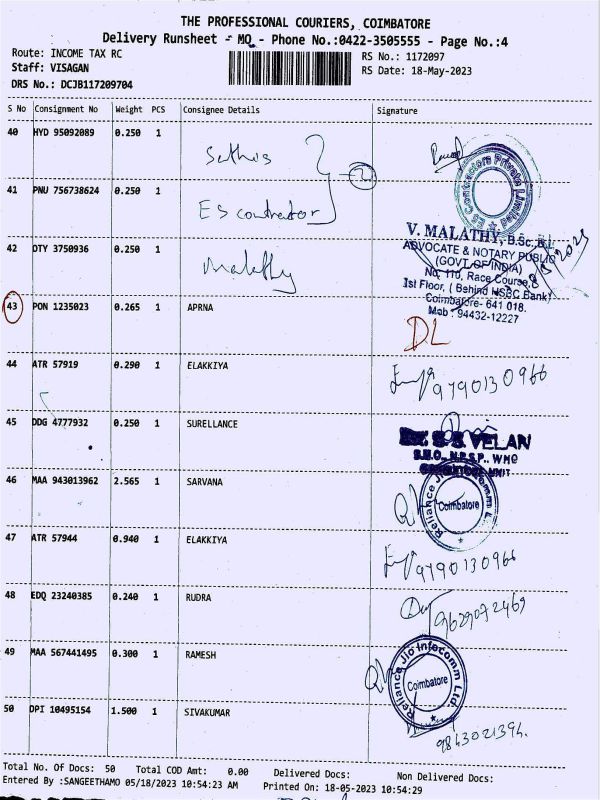 THE PROFESSIONAL COURIERS, COIMBATORE
Delivery Runsheet - MQ - Phone No.:0422-3505555 - Page No.:4
Route: INCOME TAX RC
RS No.: 1172097
Staff: VISAGAN
RS Date: 18-May-2023
DRS No.: DCJB117209704
S No Consignment No Weight PCS Consignee Details Signature
40 HYD 95092089 0.250 1 Sathis
41 PNU 756738624 0.250 1 ES contrator
2
ES Contractors Private Limited
42 DTY 3750936 0.250 1 Malathy
V. MALATHY, B.Sc.,B.L
ADVOCATE & NOTARY PUBLIC
(GOVT. OF INDIA)
No. 110, Race Course,
Ist Floor, ( Behind HSBC Bank)
Coimbatore- 641 018.
Mob : 94432-12227
43 PON 1235023 0.265 1 APRNA
DL
44 ATR 57919 0.290 1 ELAKKIYA
9790130966
45 DDG 4777932 0.250 1 SURELLANCE
VELAN
S.M.O., N.P.S.P., WHO
46 MAA 943013962 2.565 1 SARVANA
Reliance Jio Infocomm Ltd.
Coimbatore
47 ATR 57944 0.940 1 ELAKKIYA
9790130966
48 EDQ 23240385 0.240 1 RUDRA
9629072469
49 MAA 567441495 0.300 1 RAMESH
Reliance Jio Infocomm Ltd.
Coimbatore
50 DPI 10495154 1.500 1 SIVAKUMAR
9843021394.
Total No. Of Docs: 50 Total COD Amt: 0.00 Delivered Docs: Non Delivered Docs:
Entered By :SANGEETHAMO 05/18/2023 10:54:23 AM Printed On: 18-05-2023 10:54:29